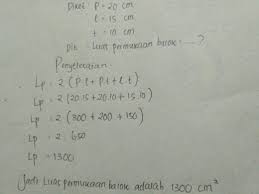 Diket : P = 20 cm
l = 15 cm
t = 10 cm
Dit : Luas permukaan balok = ----- ?
Penyelesaian
Lp = 2 (P.l + P.t + l.t)
Lp = 2 (20.15 + 20.10 + 15.10)
Lp = 2 (300 + 200 + 150)
Lp = 2 . 650
Lp = 1300
Jadi Luas permukaan balok adalah 1300 cm²